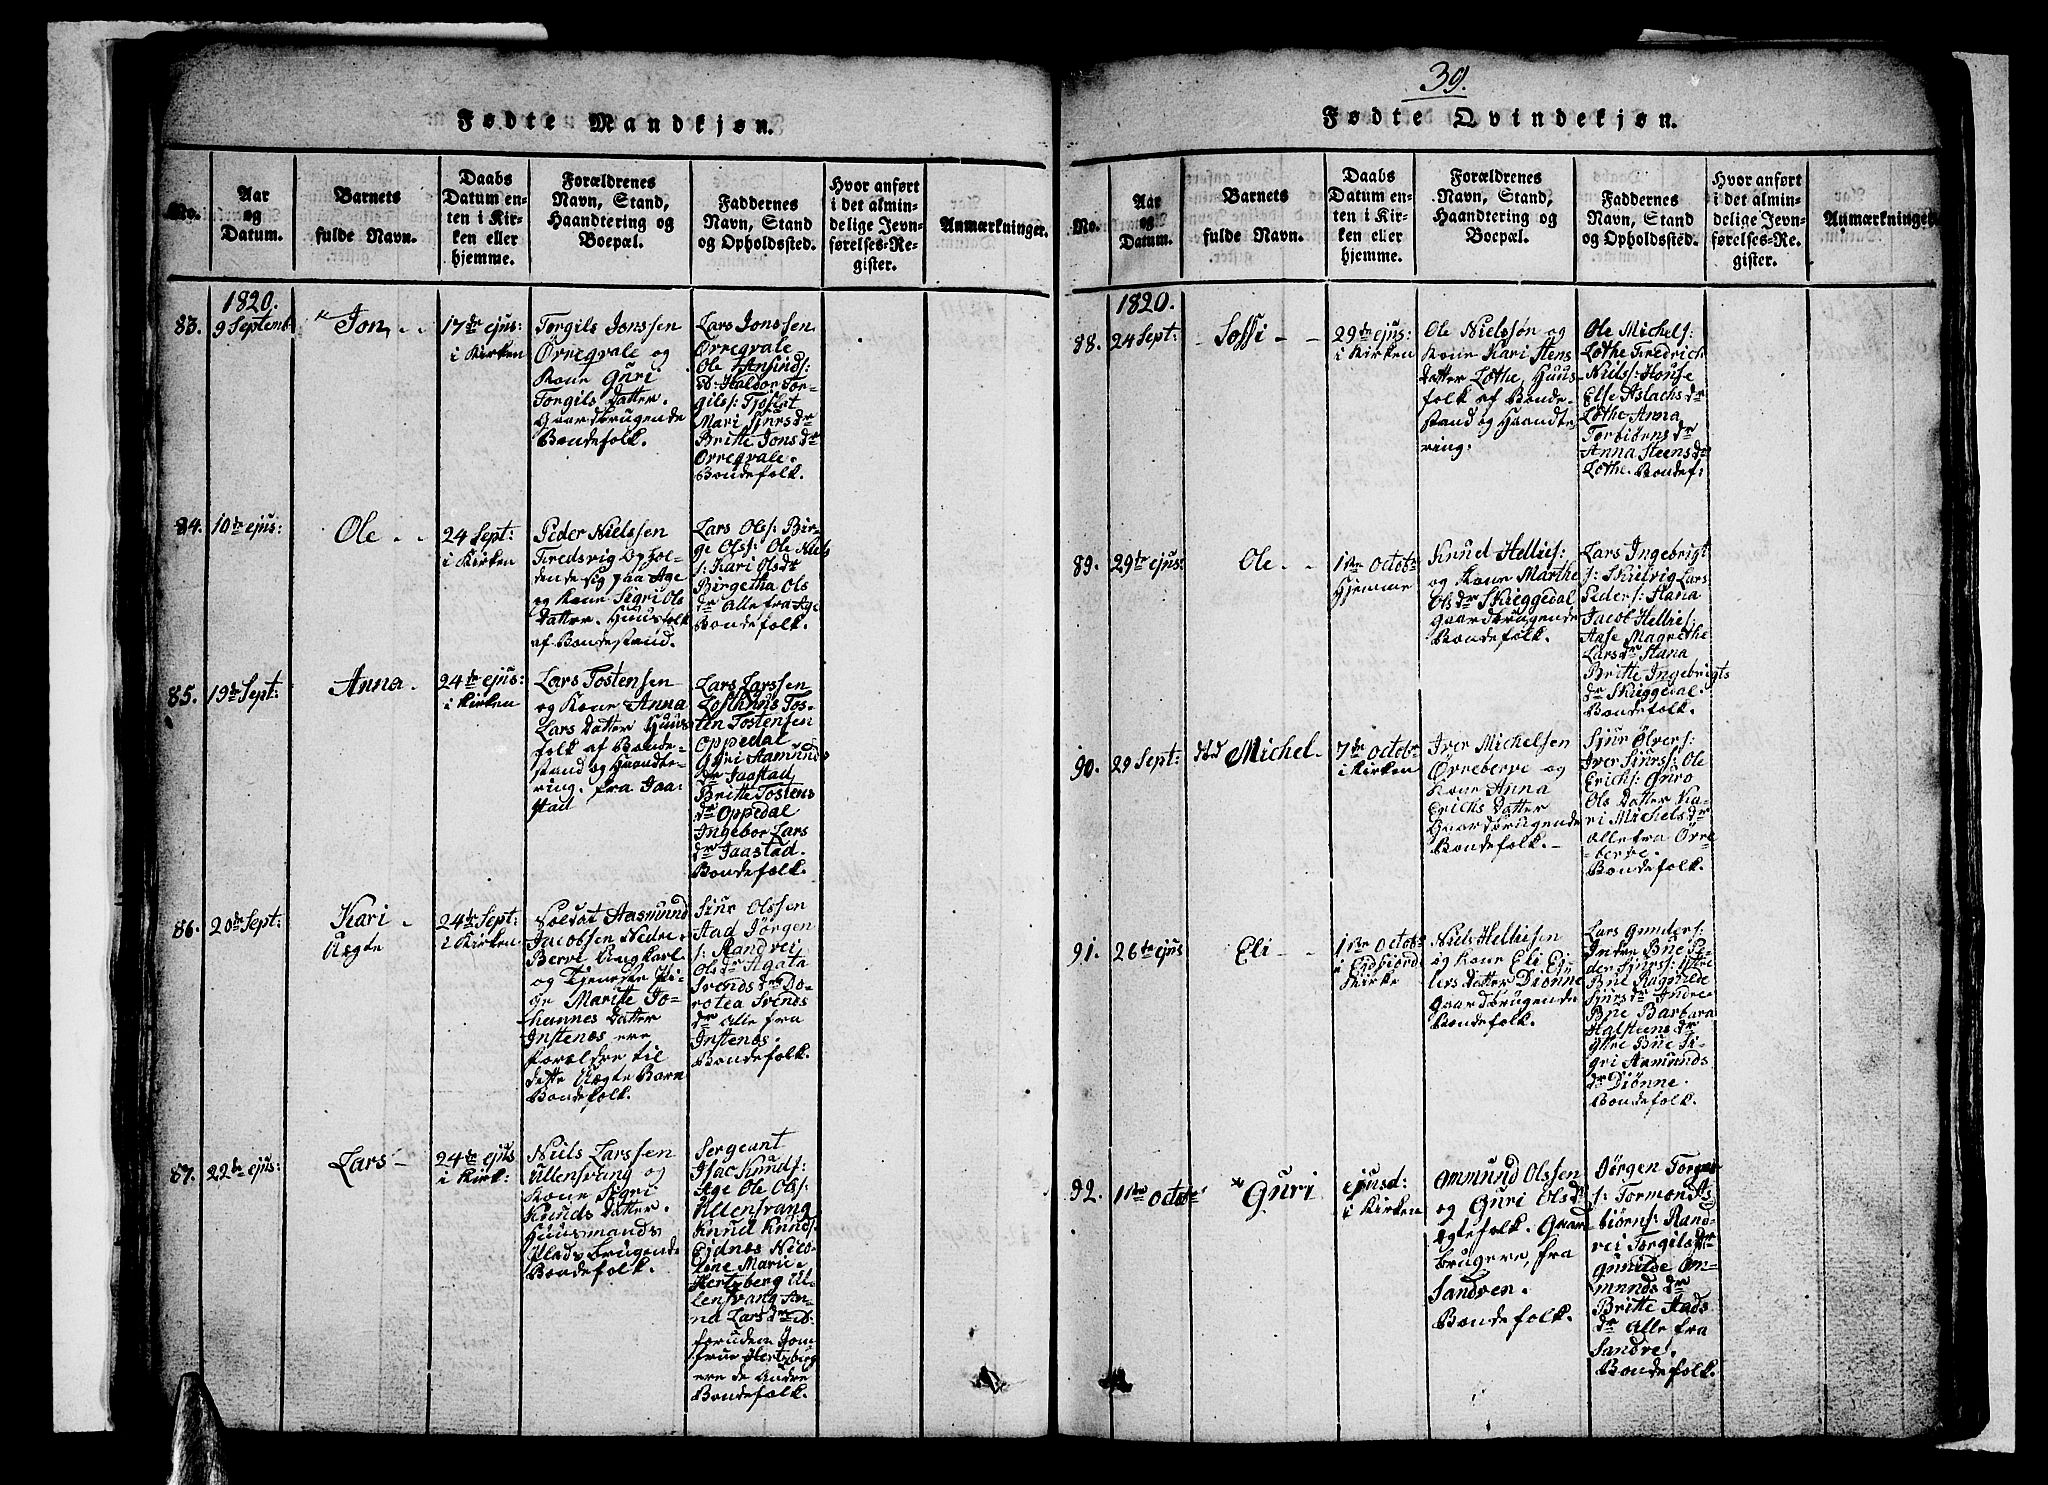 39.
Fødte Mandkjøn.
No.
Aar
og
Datum.
Barnets
fulde Navn.
Daabs
Datum en-
ten i Kir-
ken eller
hjemme.
Forældrenes
Navn, Stand,
Haandtering og
Boepæl.
Faddernes
Navn, Stand
og Opholdssted.
Hvor anført
i det almin-
delige Jevn-
førelses-Re-
gister.
Anmærkninger.
1820.
83.
9 Septemb
Jon
17de ejus:
i Kirken
Torgils Jonssen
Ørregvale og
Kone Guri
Torgils Datter.
Gaardbrugende
Bondefolk.
Lars Jonssen
Ørregvale
Ole
Haldor Tor-
gilss:
Mari Sjurs dr
Britte Jons dr
Ørregvale.
Bondefolk.
84.
10de ejus:
Ole
24 Sept:
i Kirken
Peder Nielssen
Fredsvig Ophol-
dende sig paa Age
og Kone Sigri Ols
Datter. Huusfolk
af Bondestand.
Lars Olss: Bir-
ge Olss: Ole Niels
s: Kari Ols dr
Birgetha Ols
dr Alle fra Age
Bondefolk.
85.
19de Sept:
Anna
24de ejus:
i Kirken
Lars Tostensen
og Kone Anna
Lars Datter Huus
folk af Bonde-
stand og Haandte-
ring. fra Jaa-
stad
Lars Larssen
Lofthuus Tos-
ten Tostensen
Oppedal
Guri Aamunds
dr Jaastad
Britte Tostens
dr Oppedal
Ingebor Lars
dr Jaastad.
Bondefolk.
86.
20de Sept:
Kari
Uægte
24de Sept:
i Kirken
Soldat Aasmund
Jacobsen Nedre
Berve Ungkarl
og Tjeneste Pi-
ge Maritte Jo-
hannes Datter
Instenæs ere
Forældre til
dette Uægte Barn
Bondefolk.
Sjur Olssen
Aad Jörgen
s: Randvei
Ols dr Agata
Svends dr Do-
rotea Svends
dr Alle fra
Instenæs.
Bondefolk.
87.
22de ejus:
Lars
24de ejus
i Kirk:
Niels Larssen
Ullensvang og
Kone Sigri
Knuds Datter.
Huusmands
Plads brugende
Bondefolk.
Sergeant
Isac Knuds:
Age Ole Ols:
Ullensvang
Knud Knuds:
Ejdnes Nico-
line Marie
Hertzberg Ul-
lensvang An-
na Lars dr
foruden Jom
frue Hertzberg
ere de Andre
Bondefolk.
Fødte Qvindekjøn.
No.
Aar
og
Datum.
Barnets
fulde Navn.
Daabs
Datum en-
ten i Kir-
ken eller
hjemme.
Forældrenes
Navn, Stand,
Haandtering og
Boepæl.
Faddernes
Navn, Stand
og Opholdssted.
Hvor anført
i det almin-
delige Jevn-
førelses-Re-
gister.
Anmærkninger.
1820.
88.
24 Sept:
Sossi
29de ejus:
i Kirken
Ole Nielssøn og
Kone Kari Stens
Datter Lothe, Huus
folk af Bonde-
stand og Haandte-
ring.
Ole Michels:
Lothe Fredrich
Niels: House
Else Aslachs dr
Lothe Anna
Torbiörns dr
Anna Steens dr
Lothe. Bondef:
89.
29de ejus:
Ole
1ste Octobr
Hjemme
Knud Hellies:
og Kone Marthe
Ols dr Skieggedal
Gaardbrugende
Bondefolk.
Lars Ingebrigt
s: Lars
Peders: Stana
Jacob Hellies:
Aase Magrethe
Lars dr Stana
Britte Ingebrigts
dr Skieggedal.
Bondefolk.
90.
29 Sept:
Michel
7de Octobr
i Kirken
Iver Michelsen
Ørreberve og
Kone Anna
Erichs Datter
Gaardbrugende
Bondefolk.
Sjur Ölvers:
Iver Sjurs: Ole
Erichs: Guro
Ols Datter Ka-
ri Michels dr
alle fra Örre-
berve.
Bondefolk.
91.
26te ejus
Eli
1ste Octobr
i Eidfiord
Kirke
Niels Hellesen
og Kone Eli Ej-
lers Datter Diönne
Gaardbrugende
Bondefolk.
Lars Gunders:
Indre Bue Pe-
der Sjurs: Ytre
Bue Ragnilde
Sjurs dr Indre
Bue Barbara
Halsteens dr
Ytre Bue Si-
gri Aamunds
dr Diönne.
Bondefolk.
92.
1ste Octbr
Guri
ejusd:
i Kirken
Ommund Olssen
og Guri Ols dr
Ægtefolk. Gaard
brugere, fra
Sandven.
Bondefolk.
Jörgen Torgils
s: Tormond As
biörns: Rand
vei Torgils dr
Gunilde Om-
munds dr
Britte Aads
dr Alle fra
Sandve.
Bondefolk.